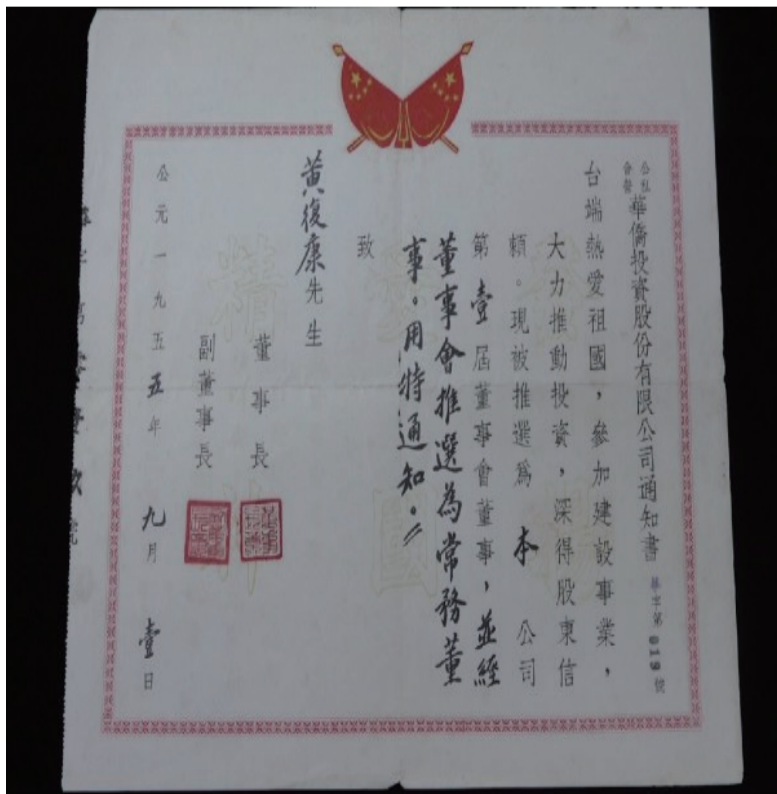 公私合營 華僑投資股份有限公司通知書 華字第019號
台端熱愛祖國,參加建設事業,
大力推動投資,深得股東信
賴。現被推選為 本 公司
第壹屆董事會董事,並經
董事會推選為常務董
事。用特通知。
致
黃復康先生
董事長
副董事長
公元一九五五年 九月 壹日